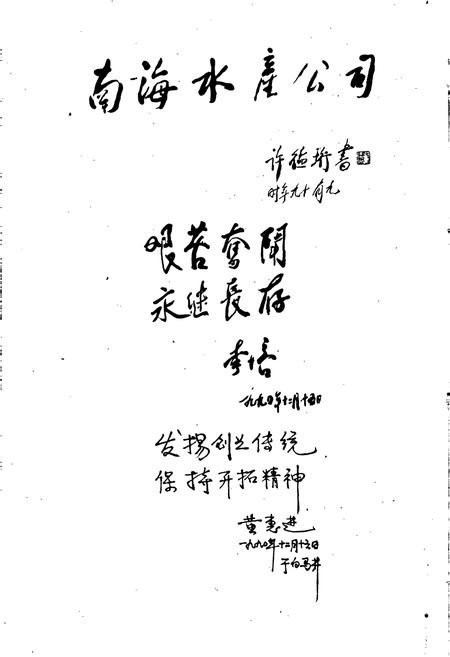 南海水產公司
许德珩書
时年九十有九
艰苦奮闘
永继長存
李培
一九九〇年十二月十五日
发揚创业传统
保持开拓精神
黄惠进
一九九〇年十二月十六日
于白马井